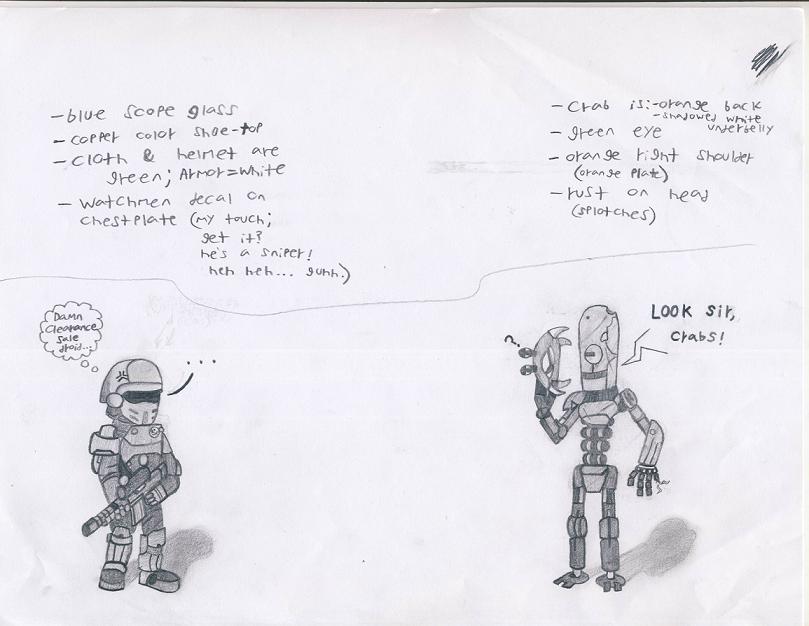 -blue scope glass
- copper color shoe-top
- cloth & helmet are
green; Armor=white
- watchmen decal on
chestplate (my touch;
get it?
he's a sniper!
heh heh... guhh.)
- Crab is:-orange back
-shadowed white
underbelly
- green eye
- orange right shoulder
(orange plate)
- rust on head
(splotches)
Damn
Clearance
sale
droid...
...
?
LOOK sir,
crabs!